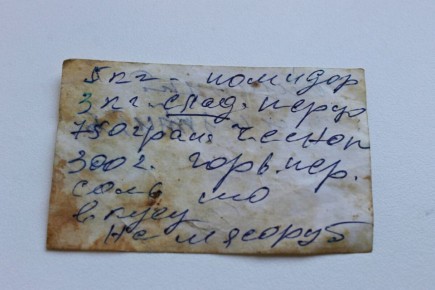 5 кг - помидор
3 кг. слад. перца
750 грам чеснок
300 г. горьк. пер.
соль по
вкусу
на мясоруб